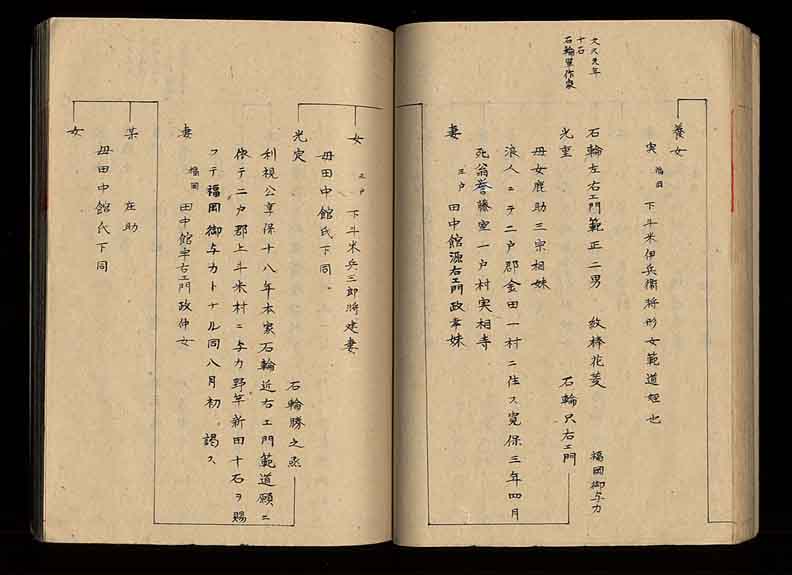 養女
実 福岡 下斗米伊兵衛将形女範道姪也
文久元年
十石
石輪里作家
石輪左右エ門範正二男 紋棒花菱 福岡御与力
光重 石輪只右エ門
母女鹿助三宗相妹
浪人ニテ二戸郡金田一村ニ住ス寛保三年四月
死翁誉藤室一戸村実相寺
妻 三戸 田中館源右エ門政孝妹
女 三戸 下斗米兵三郎将建妻
母田中館氏下同
光定 石輪勝之丞
利視公享保十八年本家石輪近右エ門範道願ニ
依テ二戸郡上斗米村ニ与力野竿新田十石ヲ賜
フテ福岡御与力トナル同八月初謁ス
妻 福岡 田中館宇右エ門政仲女
某 在助
母田中館氏下同
女